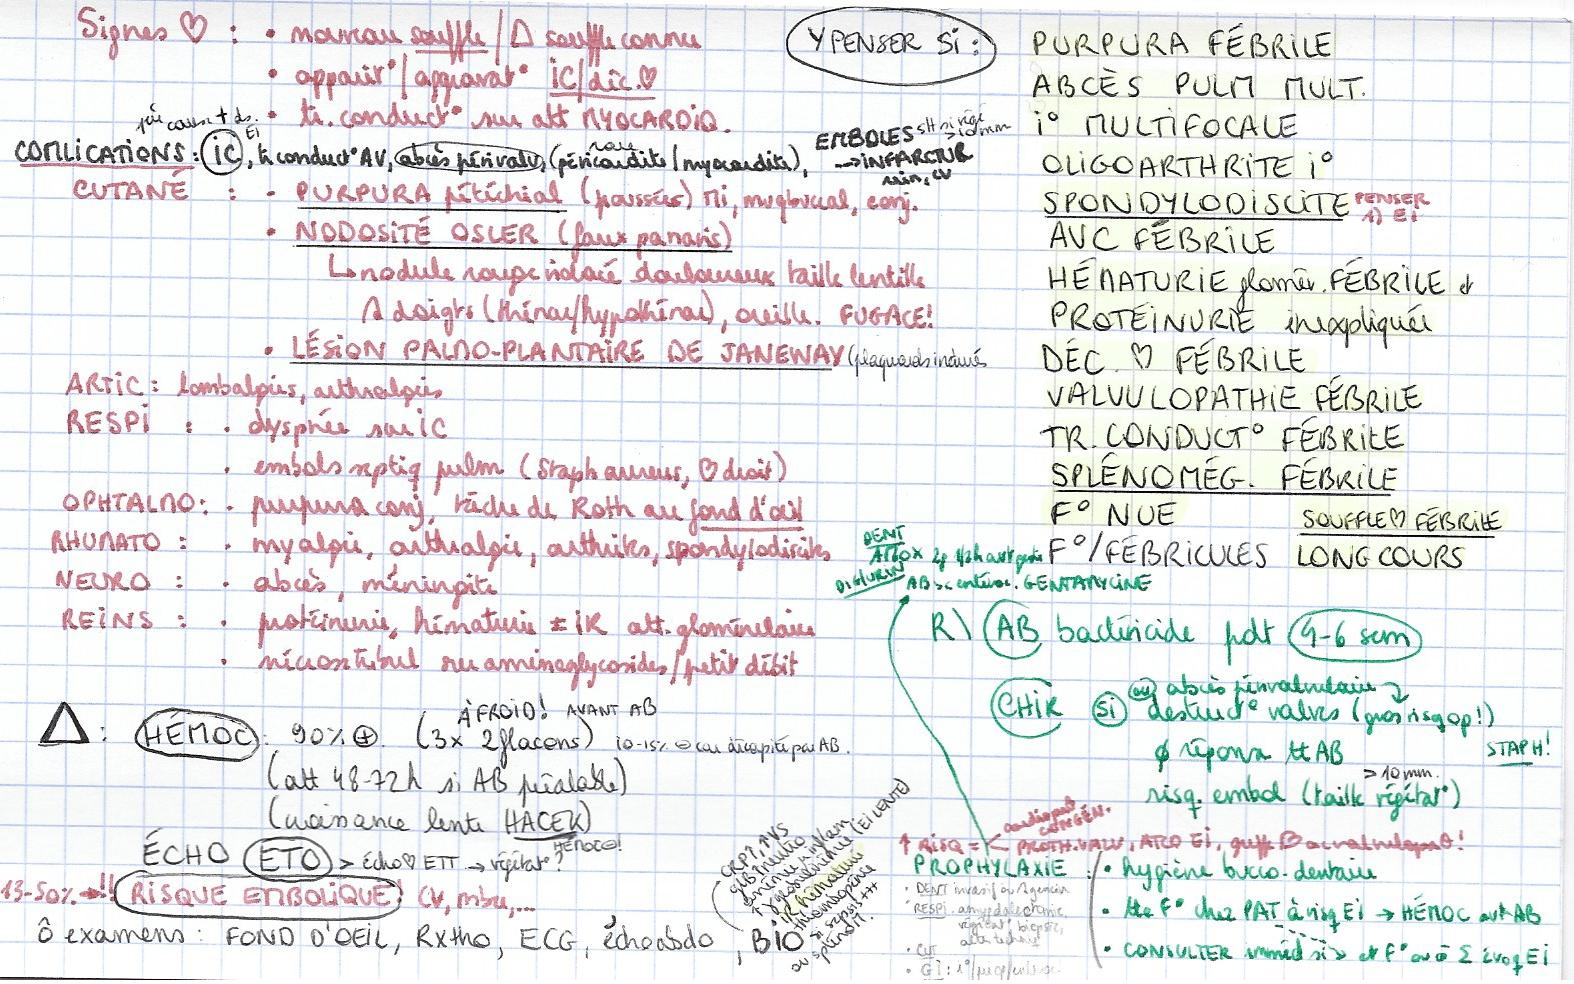 Signes ♡ : • nouveau souffle / Δ souffle connu
• apparit° / aggravat° IC / déc. ♡
• tr. conduct° sur att MYOCARDIQ.
1ère cause + ds. EI
COMLICATIONS : IC, tr conduct° AV, abcès périvalv, (péricardite / myocardite), EMBOLES stt si végé >10mm
rare
→ INFARCTUS
rein, CV
CUTANÉ : • PURPURA pétéchial (poussées) MI, muqbuccal, conj.
• NODOSITÉ OSLER (faux panaris)
↳ nodule rouge violacé douloureux taille lentille
doigts (thénar/hypothénar), oreille. FUGACE!
• LÉSION PALMO-PLANTAIRE DE JANEWAY (placards indurés
ARTIC : lombalgies, arthralgies
RESPI : • dyspnée sur IC
• embols septiq pulm (Staph aureus, ♡ droit)
OPHTALMO : • purpura conj, tâche de Roth au fond d'œil
RHUMATO : • myalgie, arthralgie, arthrites, spondylodiscites
NEURO : • abcès, méningite
REINS : • protéinurie, hématurie ± IR att. glomérulaire
• nécrostubul su aminoglycosides / petit débit
Δ : HÉMOC : 90% ⊕. (3x 2flacons) 10-15% ⊖ car décapité par AB.
À FROID! AVANT AB
(att 48-72h si AB préalable)
(croissance lente HACEK)
HÉMOC⊖!
ÉCHO ETO > écho♡ ETT → végétat°?
13-50% → !! RISQUE EMBOLIQUE! CV, mbre, ...
ô examens : FOND D'OEIL, Rx tho, ECG, écho abdo, BIO
CRP↑, ↑VS
GB neutro
anémie inflam
↑ γglobulinémie (EI LENTE)
IR hématurie
thrombopénie
si sepsis +++
ou splénom.
Y PENSER SI :
PURPURA FÉBRILE
ABCÈS PULM MULT.
i° MULTIFOCALE
OLIGOARTHRITE i°
SPONDYLODISCITE PENSER
1) EI
AVC FÉBRILE
HÉMATURIE glomér. FÉBRILE et
PROTÉINURIE inexpliquée
DÉC. ♡ FÉBRILE
VALVULOPATHIE FÉBRILE
TR. CONDUCT° FÉBRILE
SPLÉNOMÉG. FÉBRILE
F° NUE SOUFFLE♡ FÉBRILE
F°/FÉBRICULES LONG COURS
DENT
AMOX 2g 1/2h avt geste
DIG/URIN ABsc entéroc. GENTAMYCINE
R\ AB bactéricide pdt 4-6 sem
CHIR si ou abcès périvalvulaire
destruct° valves (gros risq op!)
ϕ répons tt AB STAPH!
>10mm.
risq. embol (taille végétat°)
cardiopat CONGÉN.
↑ RISQ = PROTH. VALV, ATCD EI, greffe ♡ ac valvulopat!
PROPHYLAXIE : • hygiène bucco-dentaire
• tte F° chez PAT à risq EI → HÉMOC avt AB
• CONSULTER immed si F° ou ô Σ évoq EI
• DENT invasif
• RESPI. amygdalectomie,
biopsie,
• CUT
• GI :